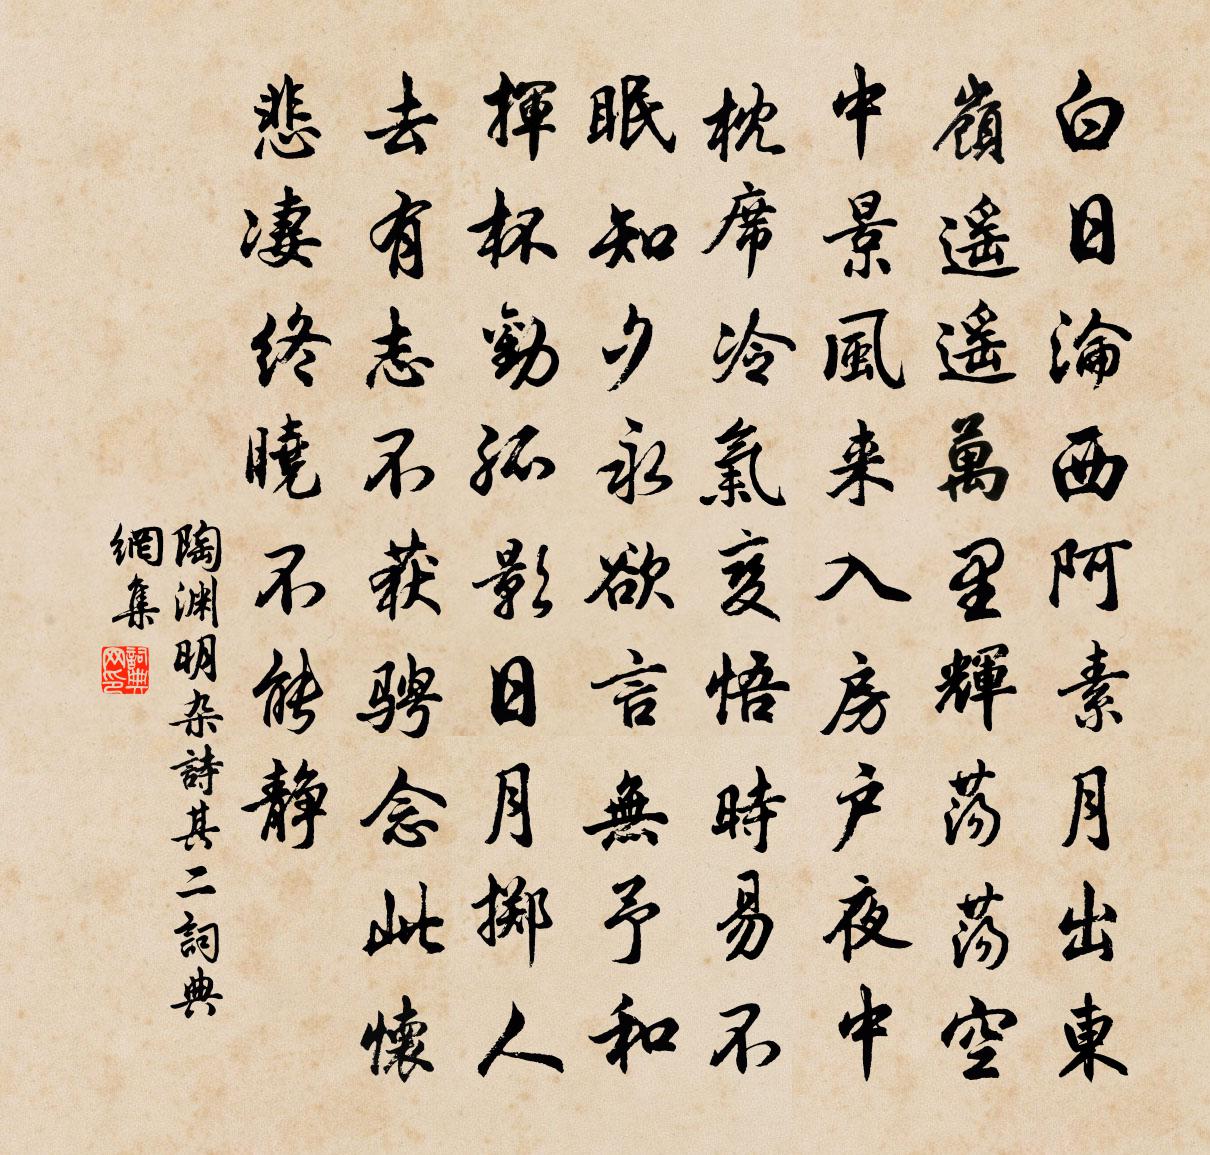 白日淪西阿素月出東
嶺遥遥萬里輝荡荡空
中景風来入房户夜中
枕席冷氣变悟時易不
眠知夕永欲言無予和
揮杯勸孤影日月掷人
去有志不获骋念此懷
悲凄终曉不能静
陶渊明杂詩其二詞典
網集
詞典
网印